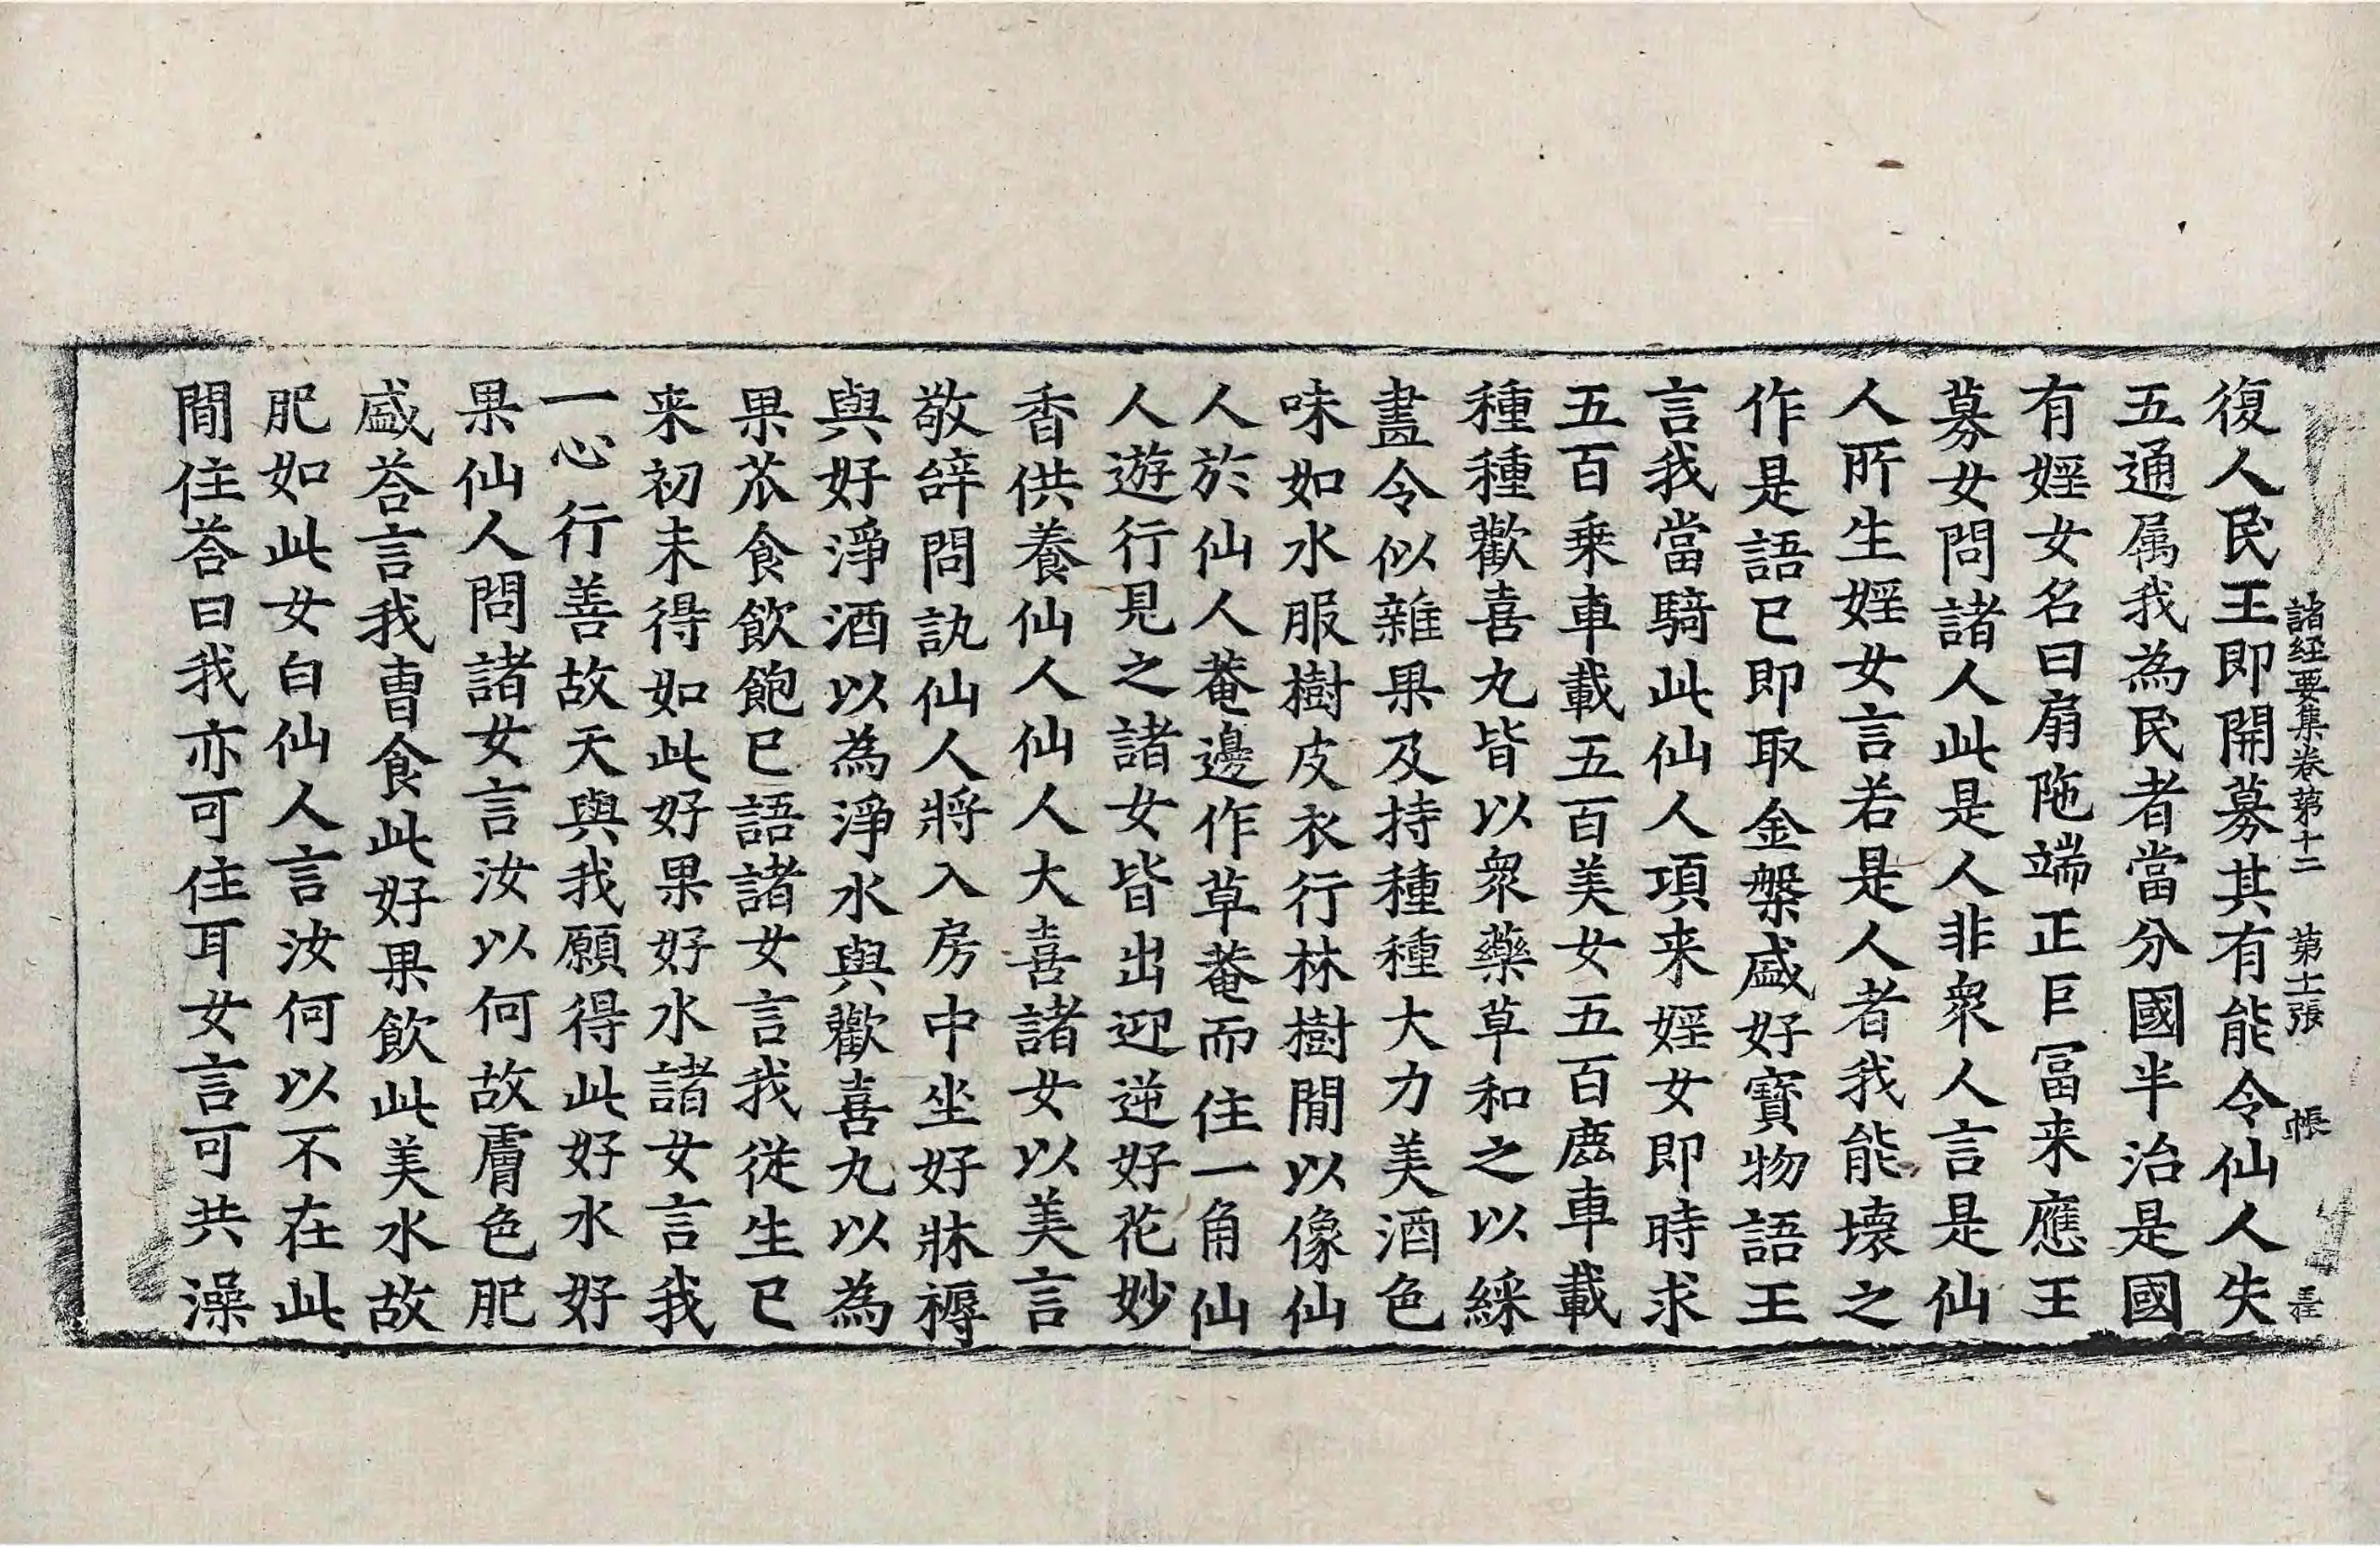 諸経要集卷第十二　第十二張　帳　王
復人民王即開募其有能令仙人失
五通属我為民者當分國半治是國
有婬女名曰扇陁端正巨冨来應王
募女問諸人此是人非衆人言是仙
人所生婬女言若是人者我能壊之
作是語已即取金槃盛好寶物語王
言我當騎此仙人項来婬女即時求
五百乗車載五百美女五百鹿車載
種種歡喜丸皆以衆藥草和之以綵
畫令似雜果及持種種大力美酒色
味如水服樹皮衣行林樹間以像仙
人於仙人菴邊作草菴而住一角仙
人遊行見之諸女皆出迎逆好花妙
香供養仙人仙人大喜諸女以美言
敬辝問訊仙人將入房中坐好牀褥
與好淨酒以為淨水與歡喜丸以為
果苽食飲飽已語諸女言我従生已
来初未得如此好果好水諸女言我
一心行善故天與我願得此好水好
果仙人問諸女言汝以何故膚色肥
盛荅言我曺食此好果飲此美水故
肥如此女白仙人言汝何以不在此
間住荅曰我亦可住耳女言可共澡